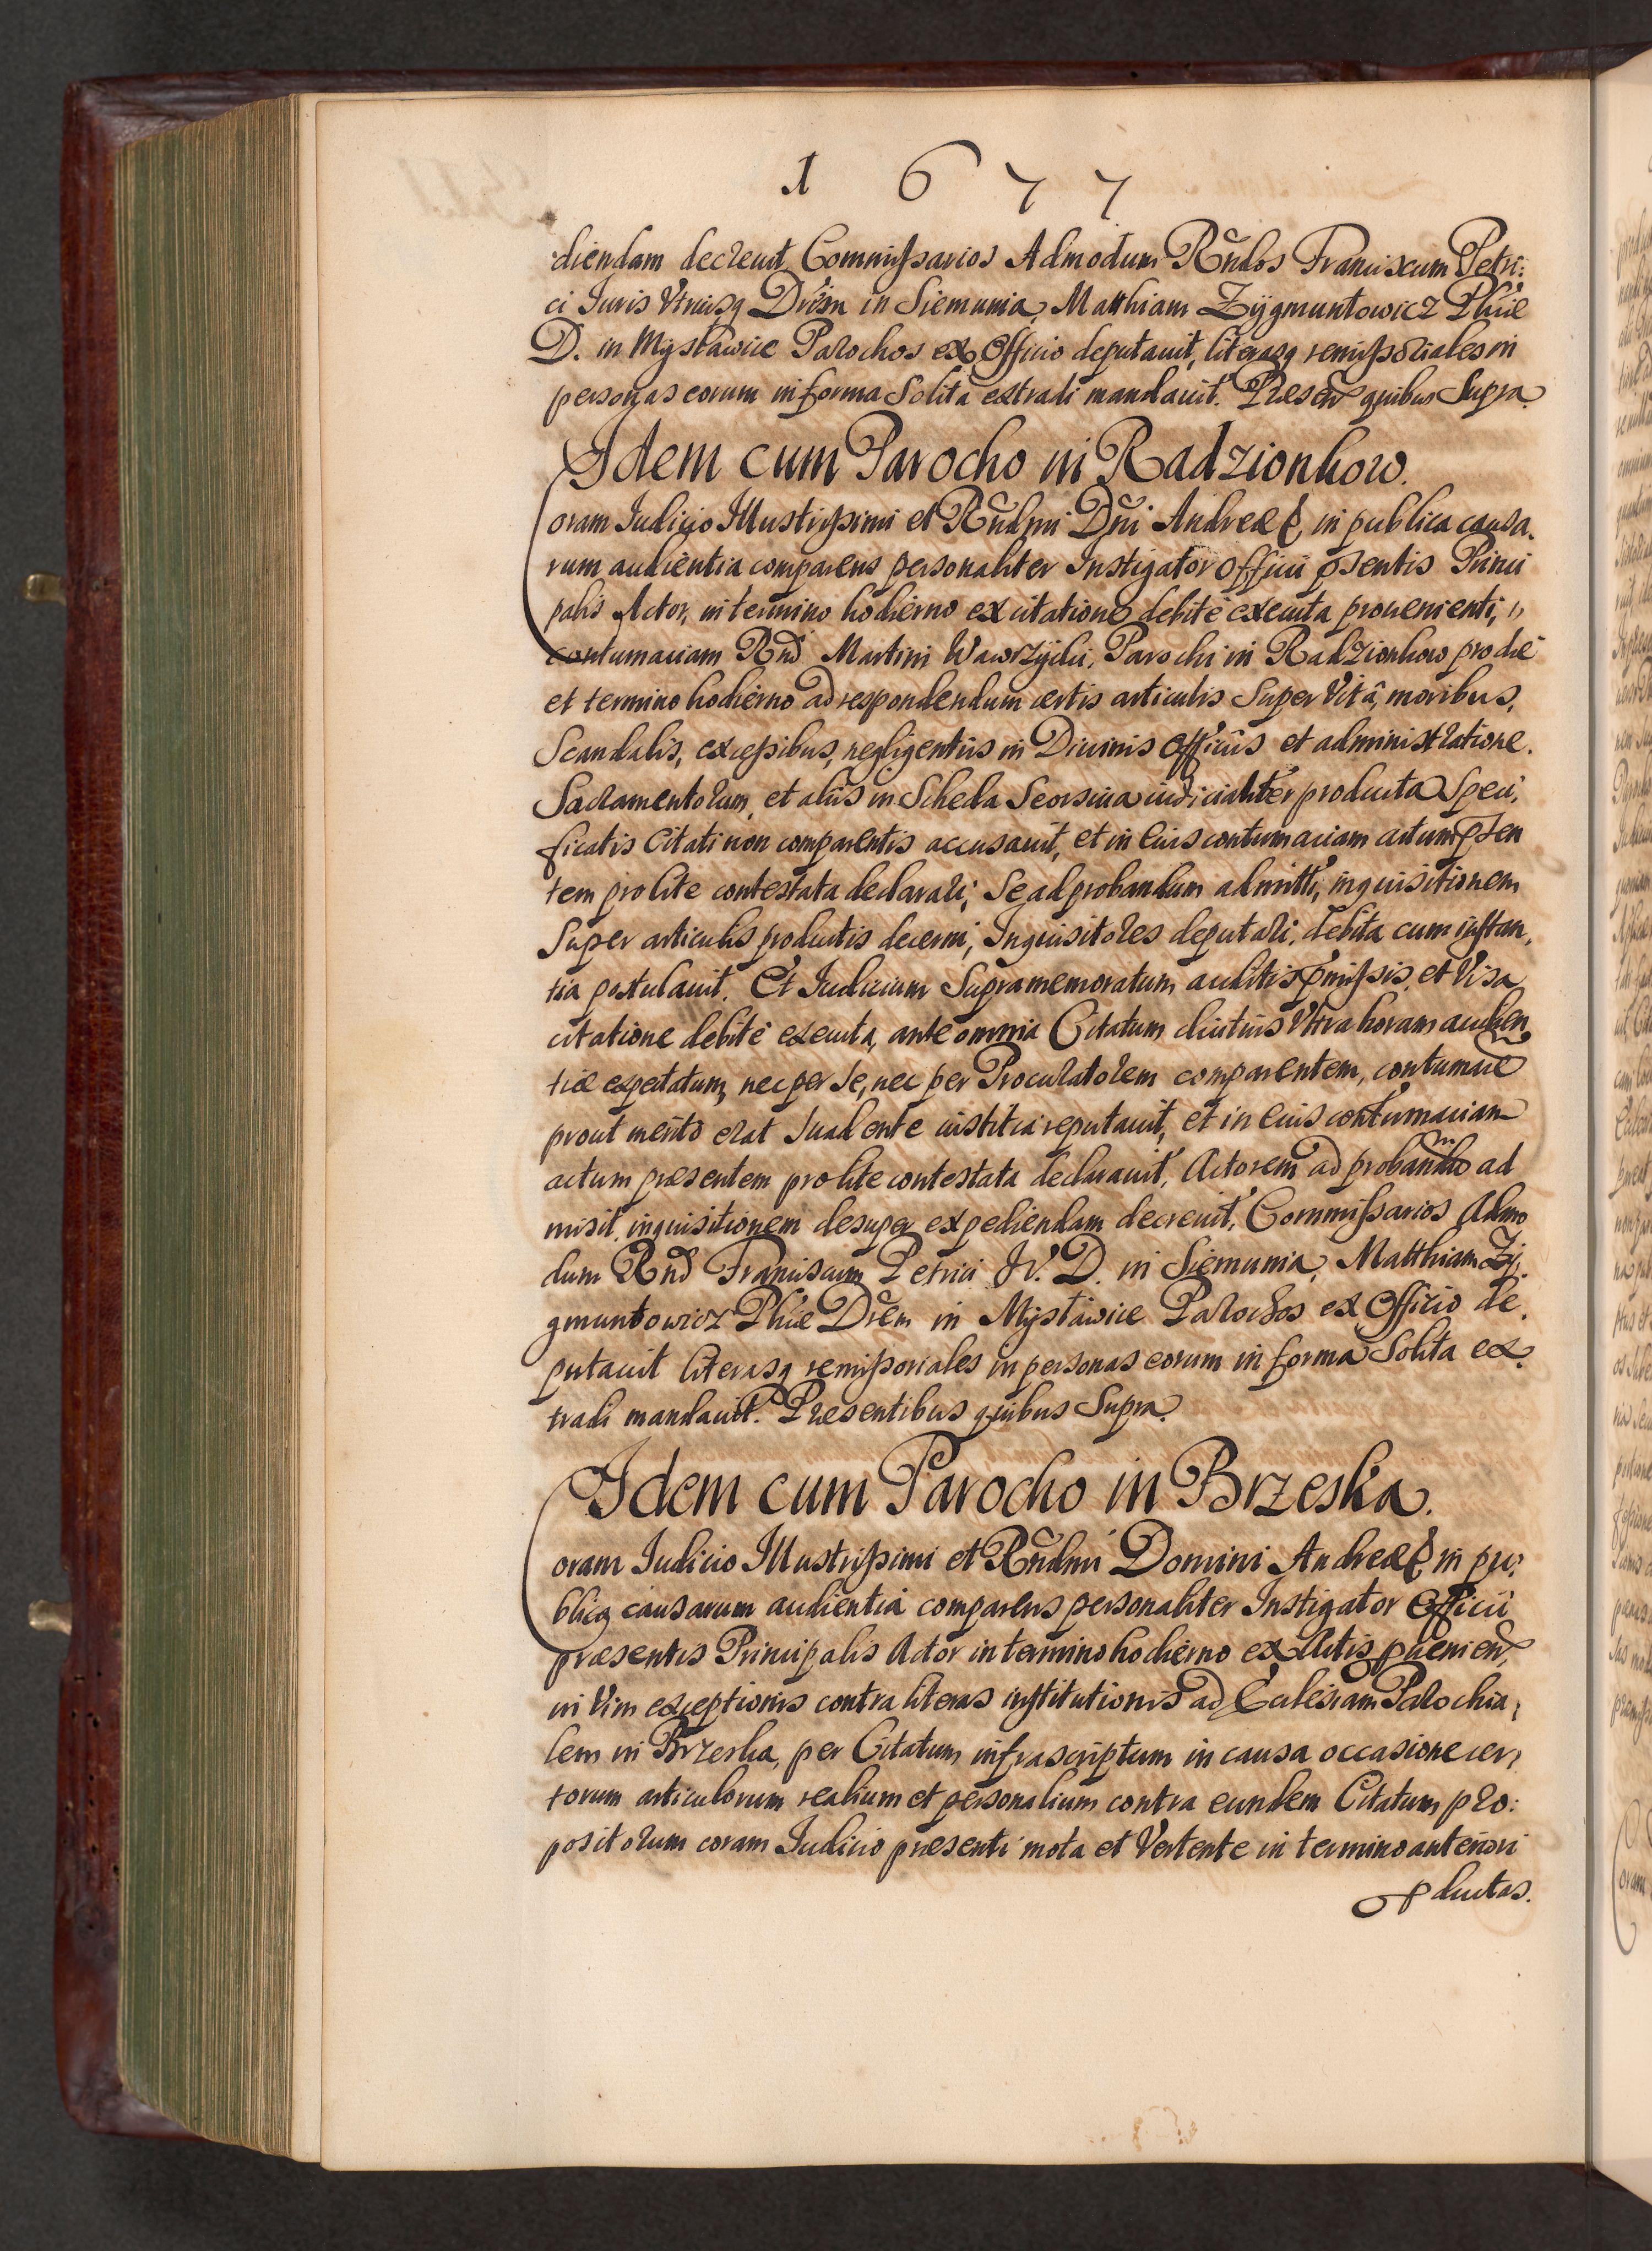 1677
diendam decreuit, Commissarios Admodum Rndos Franciscum Petri:
ci Juris Vtriusq Drem in Siemunia, Matthiam Zygmuntowicz Phiæ
D. in Mysławice Parochos ex Officio deputauit, literasq remissoriales in
personas eorum in forma Solita extradi mandauit. Præsen quibus Supra.
Idem cum Parocho in Radzionkow.
Coram Judicio Illustrissimi et Rndmi Dni Andreæ &, in publica causa.
rum audientia comparens personaliter Instigator Officii psentis Princi
palis Actor, in termino hodierno ex citatione debite executa prouenienti,
contumaciam Rnd Martini Wawrzycki, Parochi in Radzionkow pro die
et termino hodierno ad respondendum certis articulis Super Vitâ, moribus,
Scandalis, excessibus, negligentiis in Diuinis Officiis et administratione.
Sacramentorum, et aliis in Scheda Seorsiua iudicialiter producta Speci,
ficatis Citati non comparentis accusauit, et in eius contumaciam actum psen
tem pro lite contestata declarari; Se ad probandum admitti, inquisitionem
Super articulis productis decerni, Inquisitores deputari, debita cum instan,
tia postulauit. Et Judicium Supramemoratum auditis pmissis, et Visa
citatione debite executa, ante omnia Citatum diutius Vltra horam audien
tiæ expectatum, nec per Se, nec per Procuratorem comparentem, contumacem
prout merito erat Suadente iustitia reputauit, et in eius contumaciam
actum præsentem pro lite contestata declarauit, Actorem ad probandum ad
misit, inquisitionem desuper expediendam decreuit, Commissarios Admo
dum Rnd Franciscum Petrici JV. D. in Siemunia, Matthiam Zy,
gmuntowicz Phiæ Drem in Mysławice Parochos ex Officio de,
putauit literasq remissoriales in personas eorum in forma Solita ex,
tradi mandauit. Præsentibus quibus Supra.
Idem cum Parocho in Brzeska.
Coram Judicio Illustrissimi et Rndmi Domini Andreæ & in pu:
blica causarum audientia comparens personaliter Instigator Officii
præsentis Principalis Actor in termino hodierno ex Actis pueniend
in Vim exceptionis contra literas institutionis ad Ecclesiam Parochia,
lem in Brzeska, per Citatum infrascriptum in causa occasione cer,
torum articulorum realium et personalium contra eundem Citatum pro:
positorum coram Judicio præsenti mota et Vertente in termino anteriori
pductas.